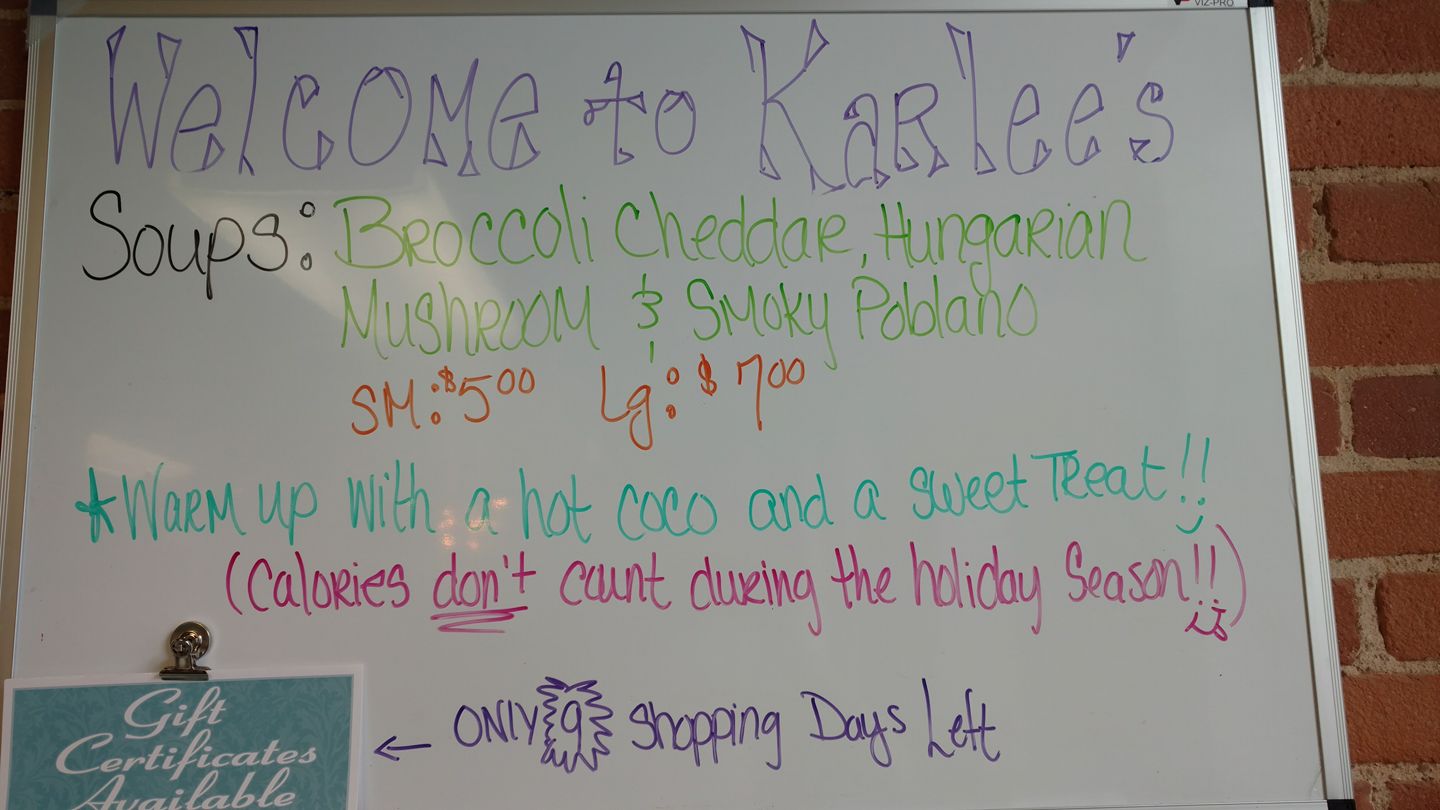 VIZ-PRO
Welcome to Karlee's
Soups: Broccoli Cheddar, Hungarian
Mushroom & Smoky Poblano
SM: $5.00 Lg: $7.00
*Warm up with a hot coco and a sweet Treat!!
(Calories don't count during the holiday Season!!)
← ONLY 9 Shopping Days Left
Gift
Certificates
Available